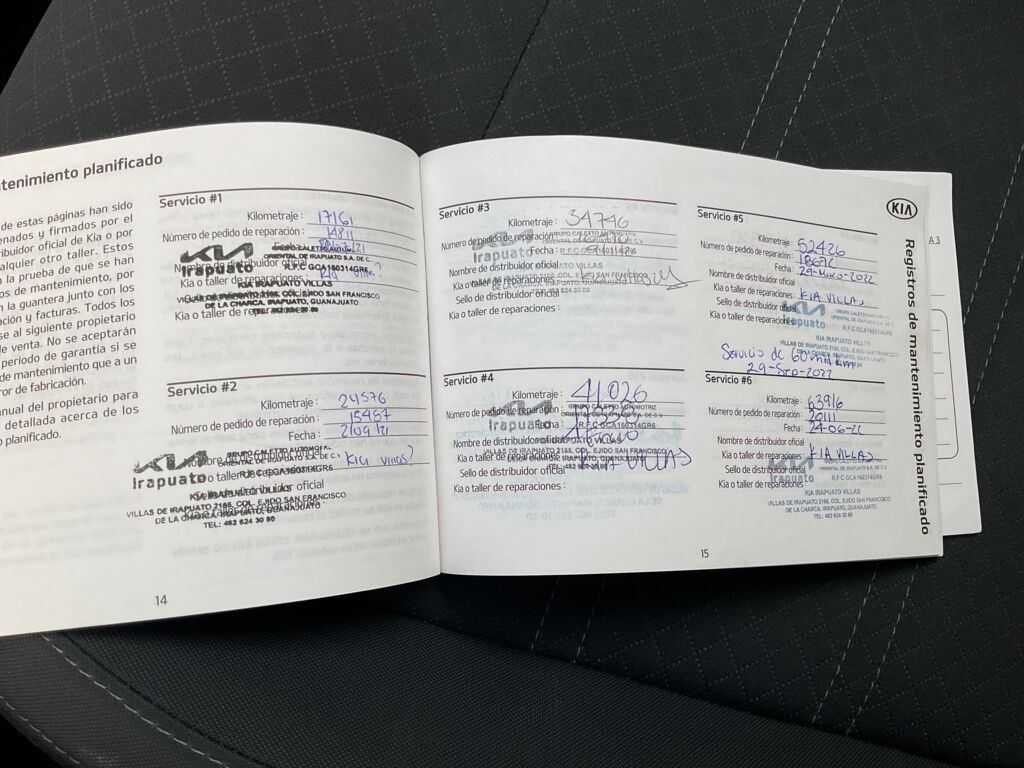 ntenimiento planificado
de estas páginas han sido
enados y firmados por el
ribuidor oficial de Kia o por
alquier otro taller. Estos
n la prueba de que se han
os de mantenimiento, por
n la guantera junto con los
ación y facturas. Todos los
se al siguiente propietario
de venta. No se aceptarán
período de garantía si se
de mantenimiento que a un
ror de fabricación.
anual del propietario para
detallada acerca de los
o planificado.
Servicio #1
Kilometraje : 17161
Número de pedido de reparación : 14811
Fecha :
KIA
Irapuato
R.F.C GCA160314GR6
Nombre de distribuidor oficial
Kia o taller de reparaciones :
KIA IRAPUATO VILLAS
VILLAS DE IRAPUATO 2166, COL. EJIDO SAN FRANCISCO
DE LA CHARCA, IRAPUATO, GUANAJUATO
TEL: 462 624 30 80
Servicio #2
Kilometraje : 24576
Número de pedido de reparación : 15467
Fecha : 2/09/21
KIA
Irapuato
GRUPO CALETTO AUTOMOTRIZ
ORIENTAL DE IRAPUATO S.A. DE C.V
R.F.C GCA160314GR6
Kia o taller de reparaciones : Kia villas?
KIA IRAPUATO VILLAS
VILLAS DE IRAPUATO 2166, COL. EJIDO SAN FRANCISCO
DE LA CHARCA, IRAPUATO, GUANAJUATO
TEL: 462 624 30 80
14
Servicio #3
Kilometraje : 34746
Número de pedido de reparación :
Fecha :
KIA
Irapuato
Nombre de distribuidor oficial
Kia o taller de reparaciones :
Sello de distribuidor oficial
Kia o taller de reparaciones :
Servicio #4
Kilometraje : 41,026
Número de pedido de reparación :
GRUPO CALETTO AUTOMOTRIZ
KIA
Irapuato
Fecha :
R.F.C GCA160314GR6
Nombre de distribuidor oficial
Kia o taller de reparaciones : VILLAS
Sello de distribuidor oficial
Kia o taller de reparaciones :
Servicio #5
Kilometraje : 52426
Número de pedido de reparación :
Fecha : 29-Mzo-2022
Nombre de distribuidor oficial
Kia o taller de reparaciones : KIA VILLAS
Sello de distribuidor oficial
Kia o taller de reparaciones
KIA
Irapuato
R.F.C GCA160314GR6
KIA IRAPUATO VILLAS
VILLAS DE IRAPUATO 2166, COL. EJIDO SAN FRANCISCO
DE LA CHARCA, IRAPUATO, GUANAJUATO
Servicio de 60 mil km
29-Sep-2022
Servicio #6
Kilometraje : 63916
Número de pedido de reparación : 20111
Fecha : 24-06-22
Nombre de distribuidor oficial
Kia o taller de reparaciones : KIA VILLAS
KIA
Irapuato
Sello de distribuidor oficial
Kia o taller de reparaciones :
R.F.C GCA160314GR6
KIA IRAPUATO VILLAS
VILLAS DE IRAPUATO 2166, COL. EJIDO SAN FRANCISCO
DE LA CHARCA, IRAPUATO, GUANAJUATO
TEL: 462 624 30 80
15
KIA
Registros de mantenimiento planificado
A3